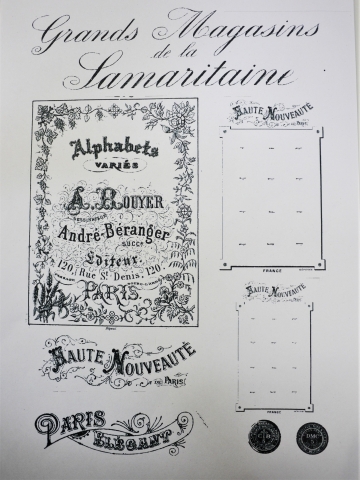 Grands Magasins
de la
Samaritaine
Alphabets
VARIÉS
A. ROUYER
DESSINATEUR
André-Béranger
succr
Editeur
120, Rue St Denis, 120
PARIS
HAUTE NOUVEAUTÉ
DE PARIS
PARIS
ÉLÉGANT
HAUTE NOUVEAUTÉ
DE PARIS
FRANCE
HAUTE NOUVEAUTÉ
DE PARIS
FRANCE
DMC